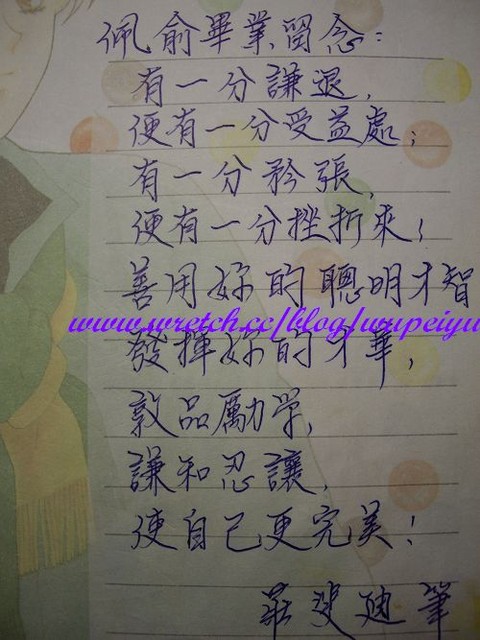 佩俞畢業留念：
有一分謙退，
便有一分受益處；
有一分矜張，
便有一分挫折來！
善用妳的聰明才智
www.wretch.cc/blog/wupeiyu
發揮妳的才華，
敦品勵学，
謙和忍讓，
使自己更完美！
莊 迪筆